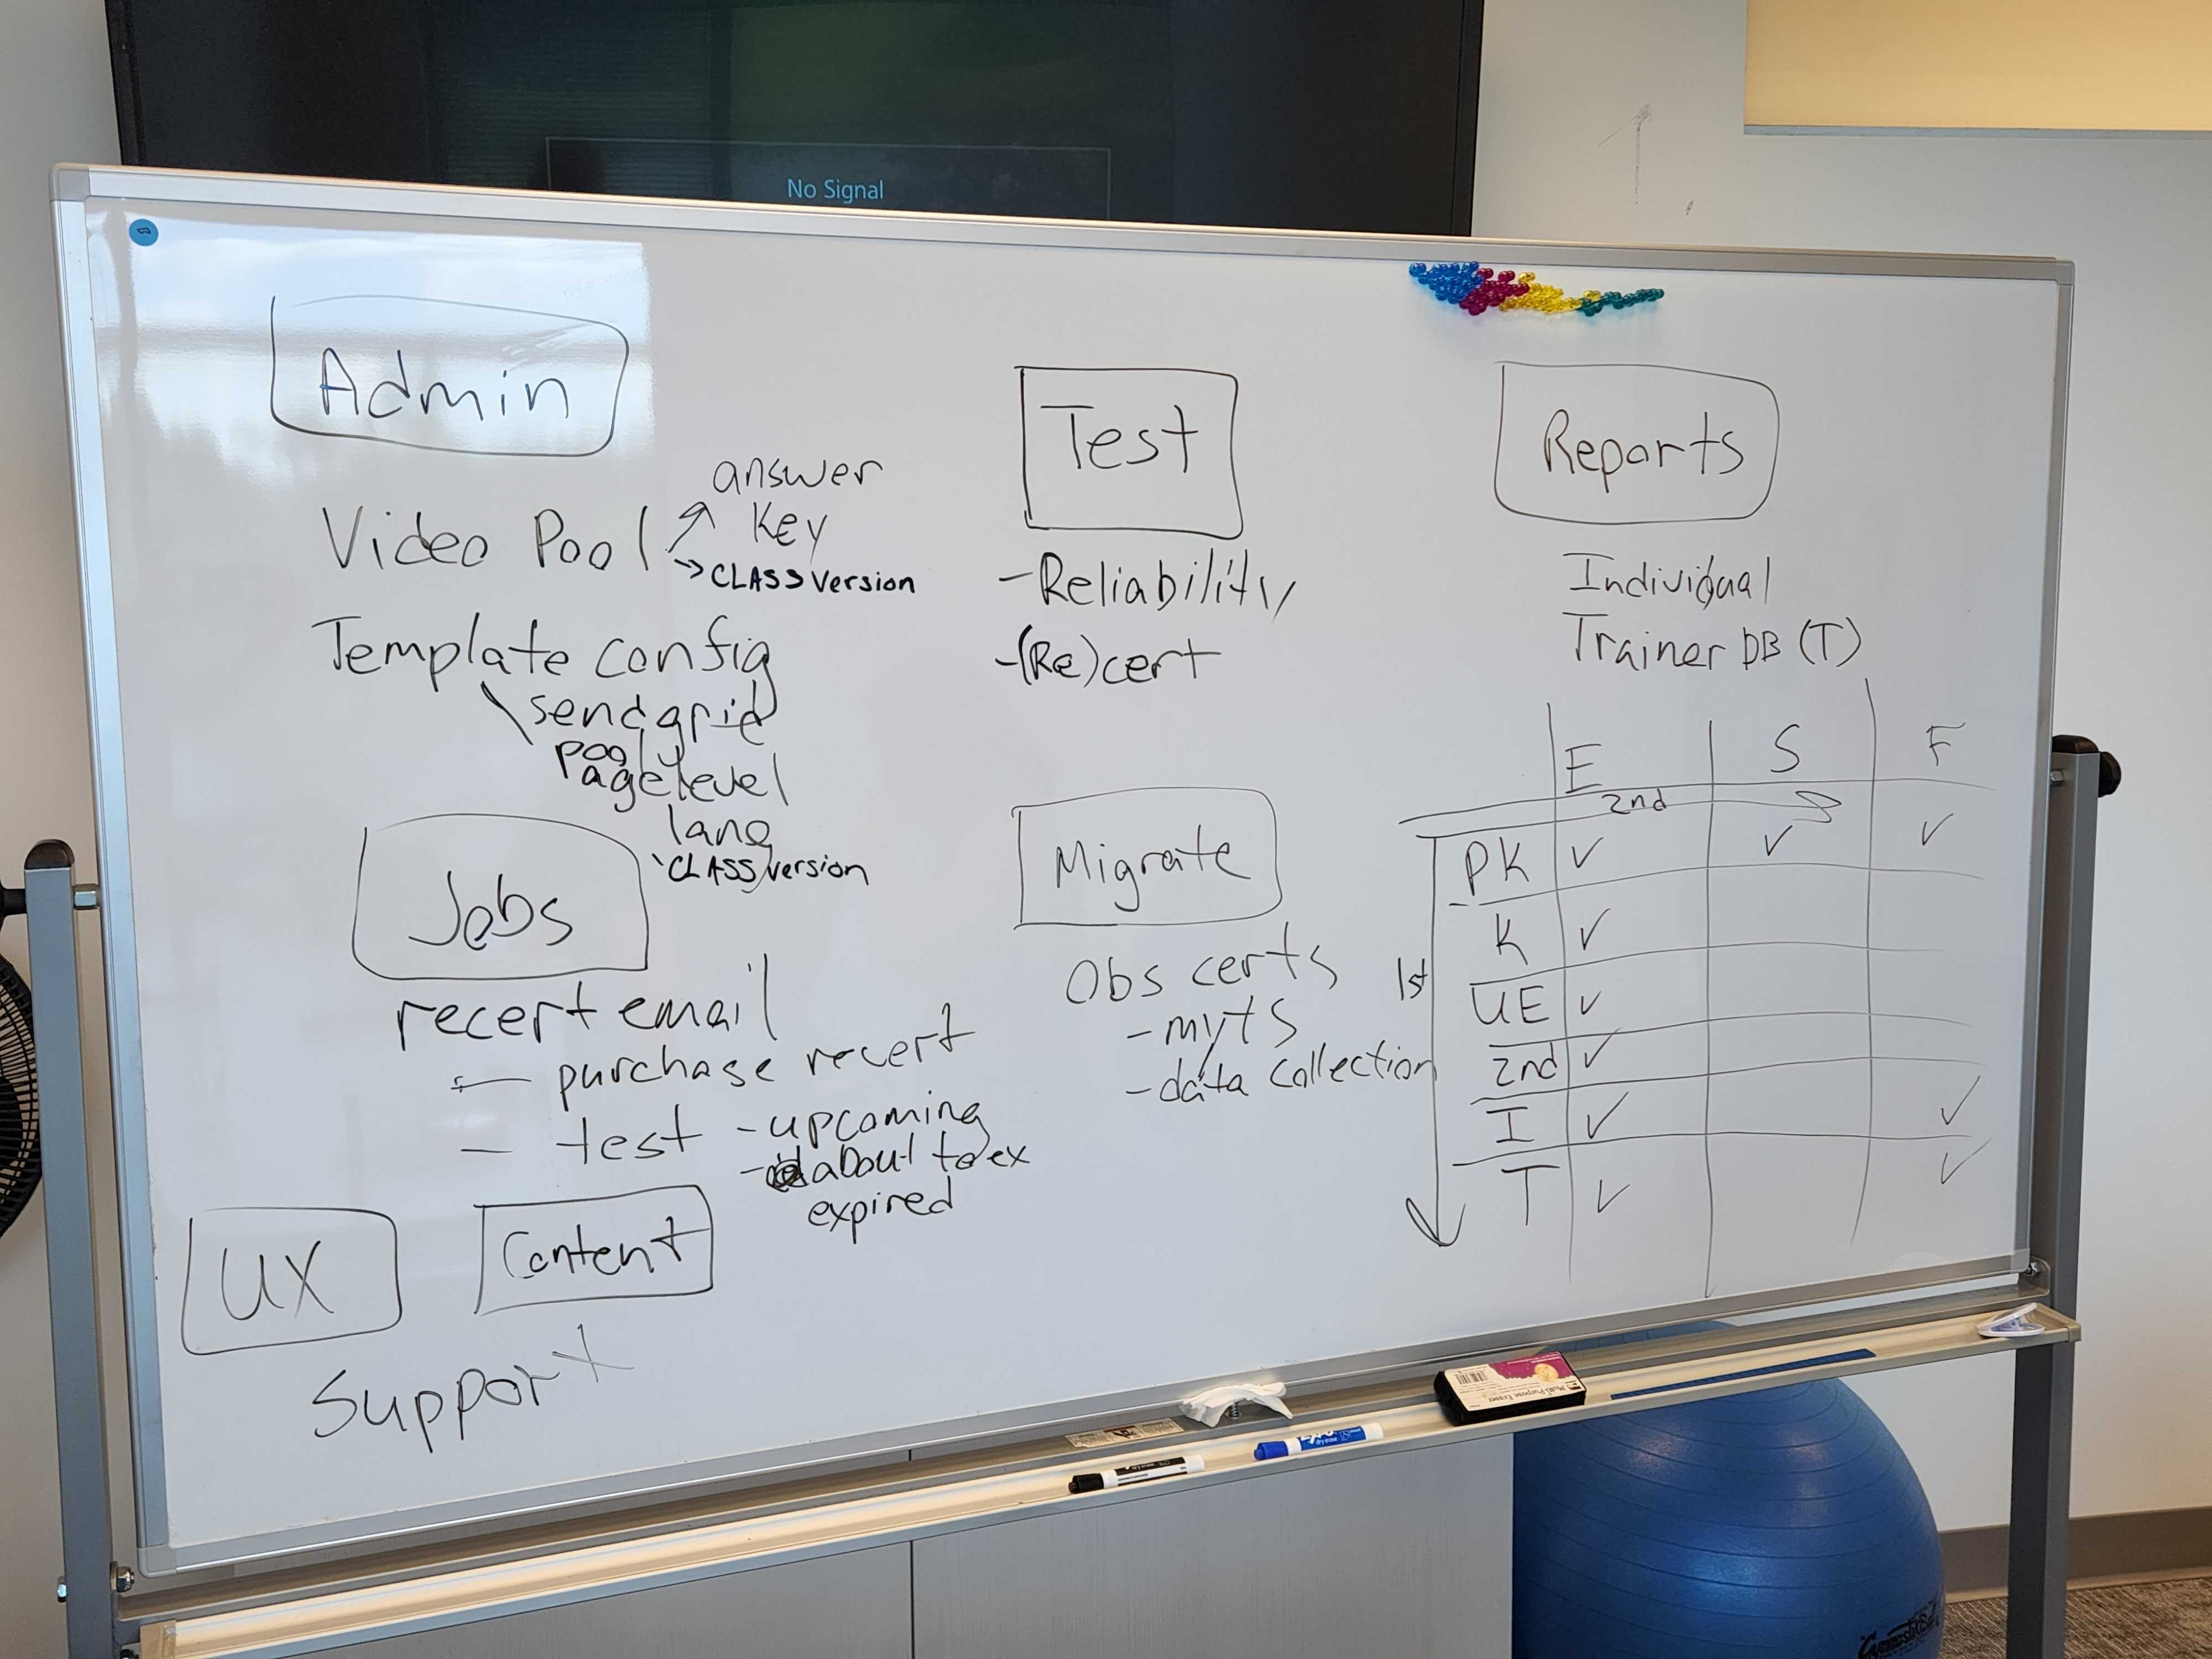 No Signal
Admin
Video Pool
answer
Key
→ CLASS version
Template config
sendgrid
pool
agelevel
lang
CLASS version
Jobs
recert email
— purchase recert
— test - upcoming
- about to ex
expired
UX
Content
Support
Test
- Reliability
- (Re)cert
Migrate
Obs certs
- myTS
- data collection
Reports
Individual
Trainer DB (T)
E S F
2nd
1st
PK ✓ ✓ ✓
K ✓
UE ✓
2nd ✓
I ✓ ✓
T ✓ ✓
Multi-Purpose Eraser